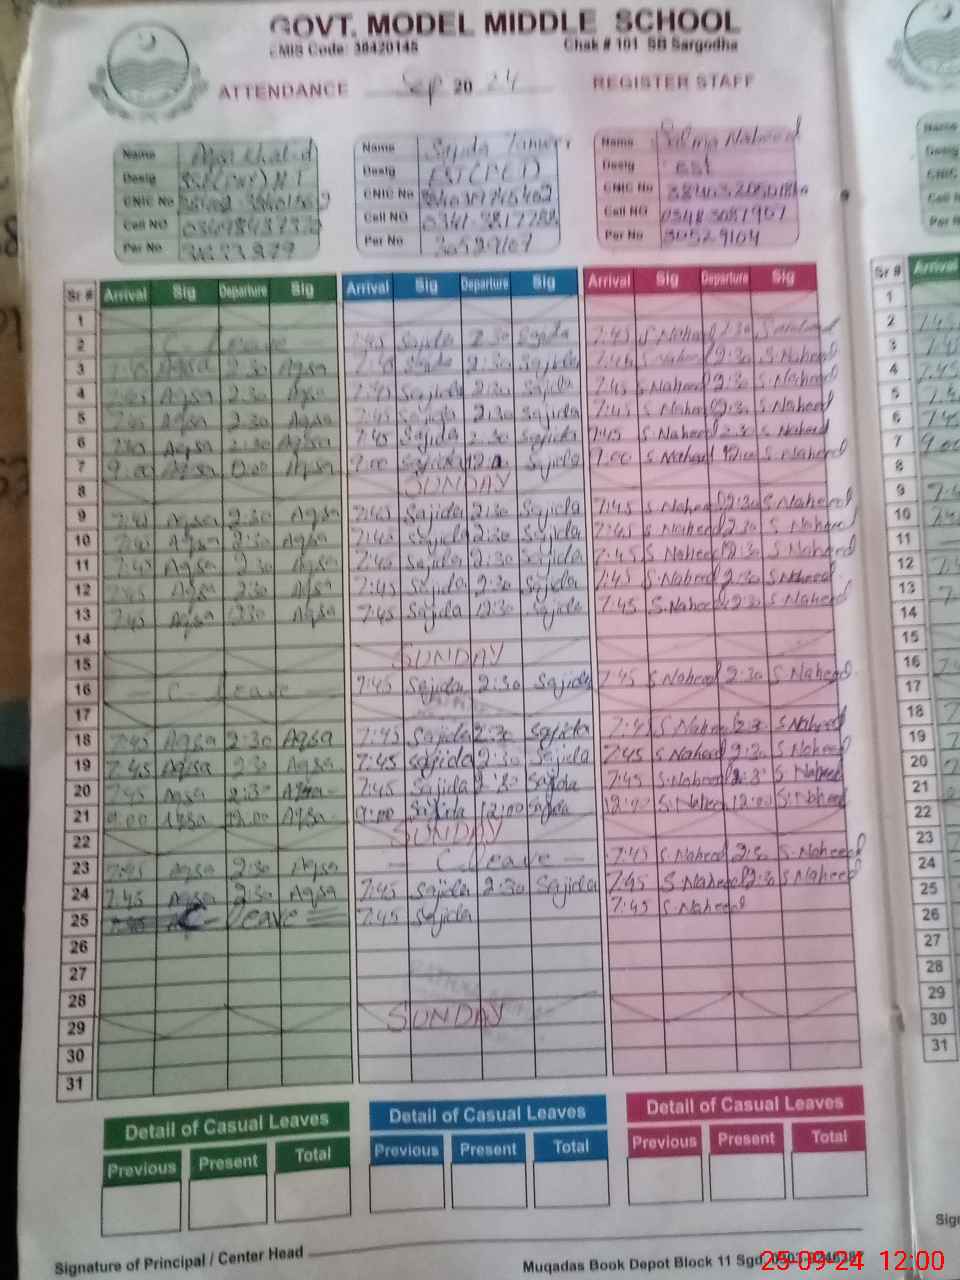 GOVT. MODEL MIDDLE SCHOOL
EMIS Code: 38420145 Chak # 101 SB Sargodha
ATTENDANCE Sep 20 24 REGISTER STAFF
Name Aqsa Khalid Name Sajida Name Salma Naheed
Desig Desig Desig EST
CNIC No CNIC No CNIC No
Cell NO Cell NO 0341-3817788 Cell NO 03483087907
Per No Per No 30529107 Per No 30529104
Sr # Arrival Sig Departure Sig Arrival Sig Departure Sig Arrival Sig Departure Sig Sr # Arrival
1 1
2 C Leave 7:45 Sajida 2:30 Sajida 7:45 S.Naheed 2:30 S.Naheed 2
3 Aqsa 2:30 Aqsa 7:45 Sajida 2:30 Sajida 7:45 S.Naheed 2:30 S.Naheed 3
4 7:45 Aqsa 2:30 Aqsa 7:45 Sajida 2:30 Sajida 7:45 S.Naheed 2:30 S.Naheed 4
5 7:45 Aqsa 2:30 Aqsa 7:45 Sajida 2:30 Sajida 7:45 S.Naheed 2:30 S.Naheed 5
6 Aqsa 2:30 Aqsa 7:45 Sajida 2:30 Sajida 7:45 S.Naheed 2:30 S.Naheed 6
7 9:00 Aqsa 12:00 Aqsa 9:00 Sajida Sajida 9:00 S.Naheed 12:00 S.Naheed 7
8 SUNDAY 8
9 7:45 Aqsa 2:30 Aqsa 7:45 Sajida 2:30 Sajida 7:45 S.Naheed 2:30 S.Naheed 9
10 7:45 Aqsa 2:30 Aqsa 7:45 Sajida 2:30 Sajida 7:45 S.Naheed 2:30 S.Naheed 10
11 7:45 Aqsa 2:30 Aqsa 7:45 Sajida 2:30 Sajida 7:45 S.Naheed 2:30 S.Naheed 11
12 7:45 Aqsa 2:30 Aqsa 7:45 Sajida 2:30 Sajida 7:45 S.Naheed 2:30 S.Naheed 12
13 7:45 Aqsa 2:30 Aqsa 7:45 Sajida 2:30 Sajida 7:45 S.Naheed 2:30 S.Naheed 13
14 14
15 SUNDAY 15
16 C-Leave 7:45 Sajida 2:30 Sajida 7:45 S.Naheed 2:30 S.Naheed 16
17 17
18 7:45 Aqsa 2:30 Aqsa 7:45 Sajida 2:30 Sajida 7:45 S.Naheed 2:30 S.Naheed 18
19 7:45 Aqsa 2:30 Aqsa 7:45 Sajida 2:30 Sajida 7:45 S.Naheed 2:30 S.Naheed 19
20 7:45 Aqsa 2:30 Aqsa 7:45 Sajida 2:30 Sajida 7:45 S.Naheed 2:30 S.Naheed 20
21 9:00 Aqsa 12:00 Aqsa 9:00 Sajida 12:00 Sajida S.Naheed 12:00 S.Naheed 21
22 SUNDAY 22
23 7:45 Aqsa 2:30 Aqsa - C Leave - 7:45 S.Naheed 2:30 S.Naheed 23
24 7:45 Aqsa 2:30 Aqsa 7:45 Sajida 2:30 Sajida 7:45 S.Naheed 2:30 S.Naheed 24
25 C- Leave 7:45 Sajida 7:45 S.Naheed 25
26 26
27 27
28 28
29 SUNDAY 29
30 30
31 31
Detail of Casual Leaves Detail of Casual Leaves Detail of Casual Leaves
Previous Present Total Previous Present Total Previous Present Total
Signature of Principal / Center Head
Muqadas Book Depot Block 11 Sgd.
25-09-24 12:00